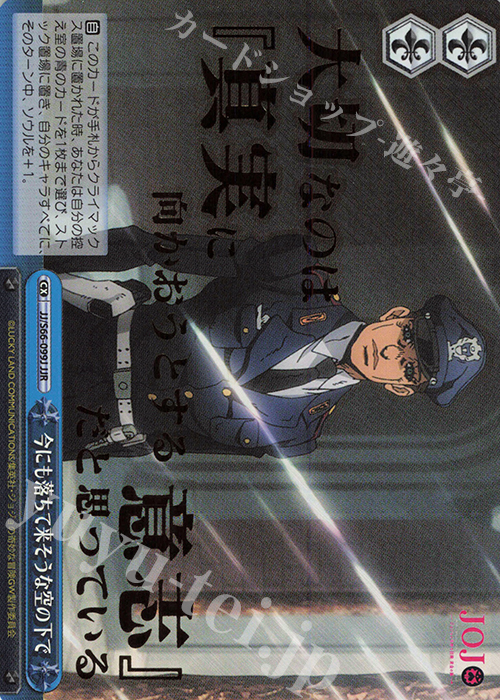 大切なのは
『真実』に
向かおうとする
意志』
だと思っている
カードショップ-遊々亭
yuyu-tei.jp
自 このカードが手札からクライマックス置場に置かれた時、あなたは自分の控え室の青のカードを1枚まで選び、ストック置場に置き、自分のキャラすべてに、そのターン中、ソウルを+1。
CX
JJ/S66-099J JJR
今にも落ちて来そうな空の下で
©LUCKY LAND COMMUNICATIONS/集英社・ジョジョの奇妙な冒険GW製作委員会
JOJO